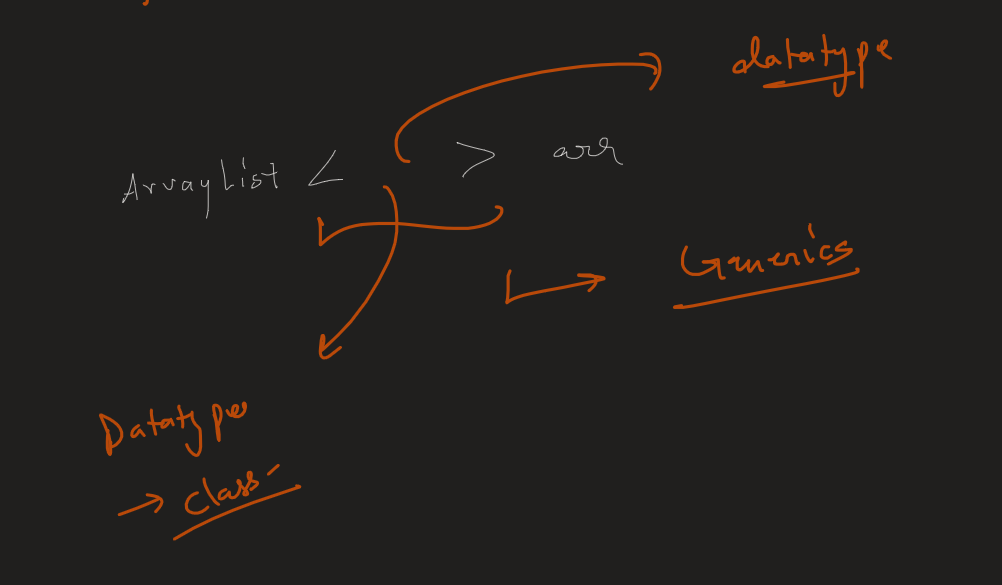 datatype
ArrayList < > arr
Generics
Datatype
→ class